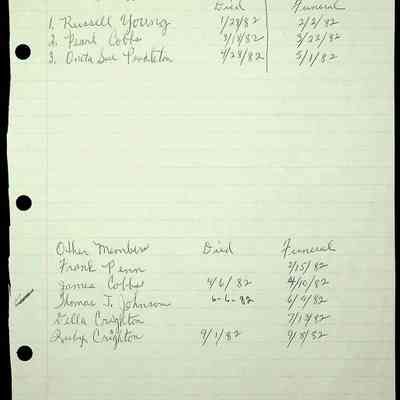 Died Funeral
1. Russell Young 1/28/82 2/2/82
2. Pearl Cobbs 3/18/82 3/22/82
3. Oneta Sue Pendleton 4/28/82 5/1/82
Other Members Died Funeral
Frank Penn 2/15/82
James Cobbs 4/6/82 4/10/82
Thomas J. Johnson 6-6-82 6/9/82
Della Creighton 7/13/82
Rubye Crighton 9/1/82